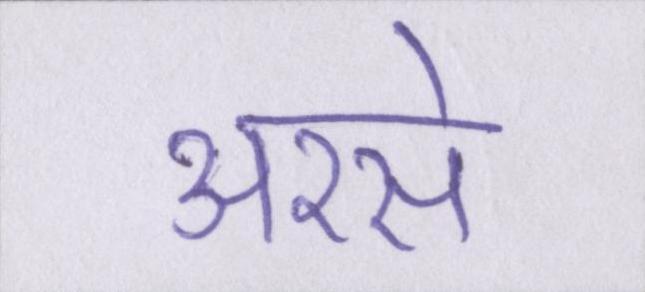 अरसे